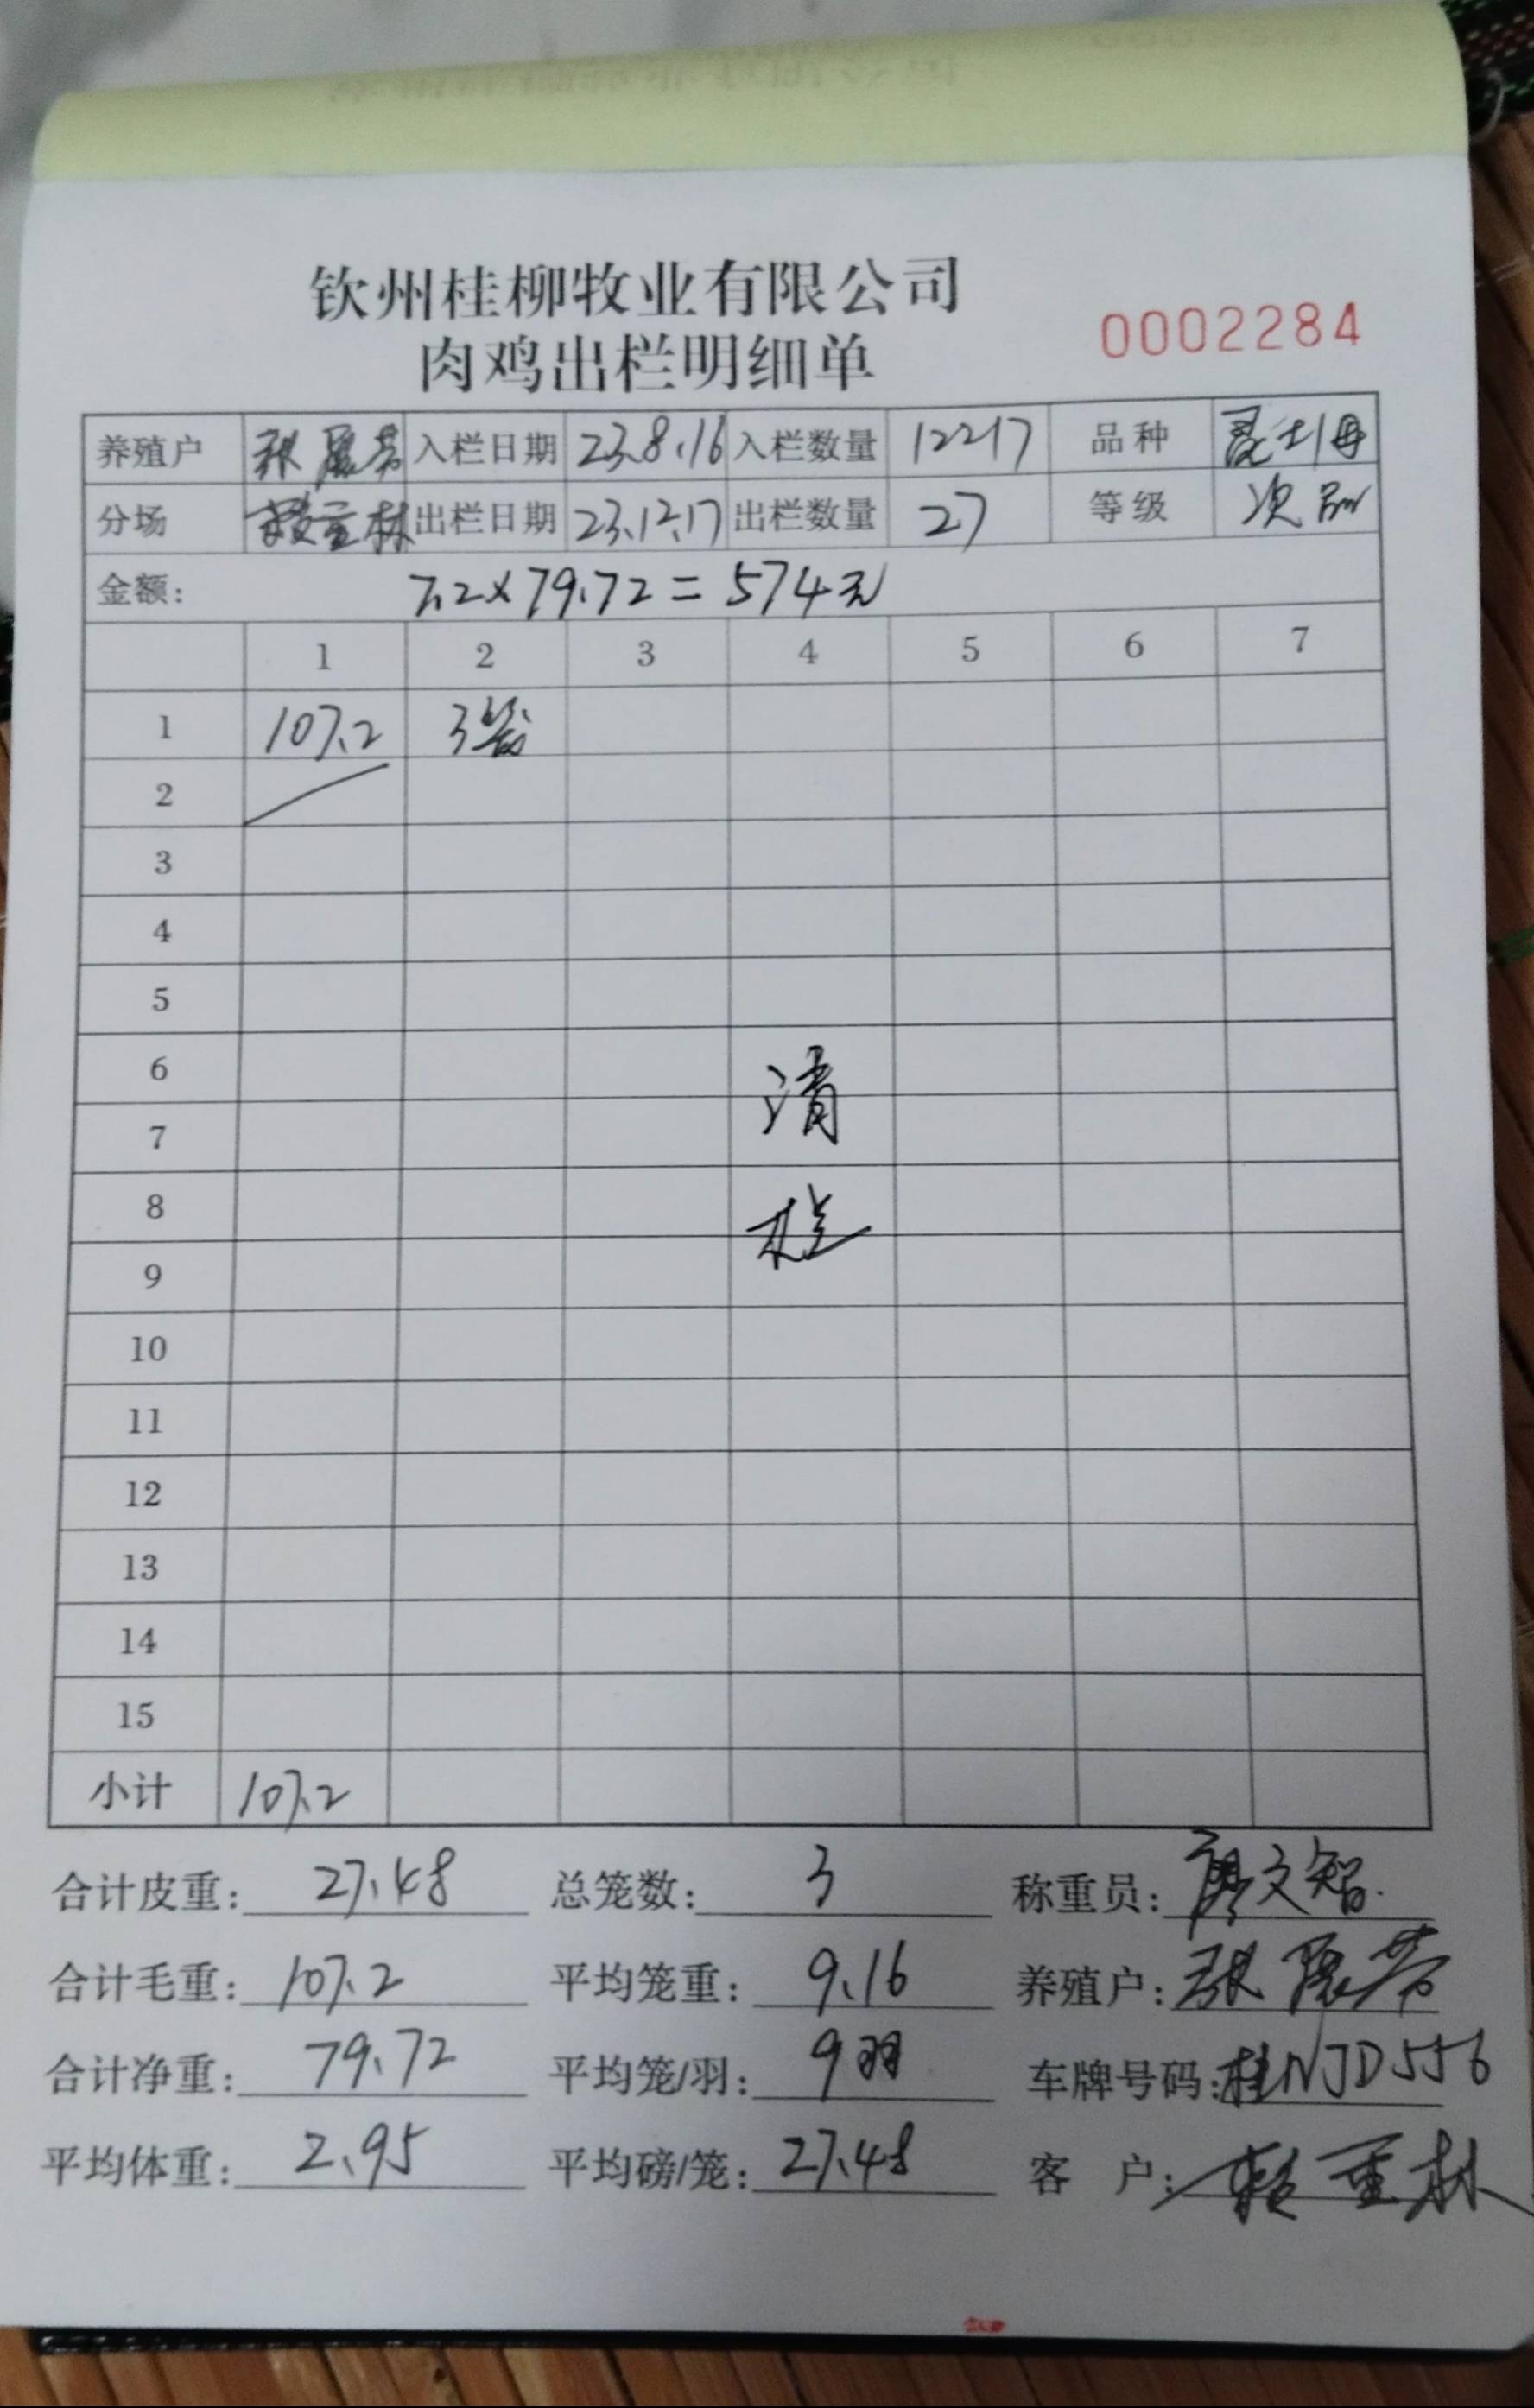 钦州桂柳牧业有限公司
肉鸡出栏明细单
0002284
养殖户 张 芳 入栏日期 23.8.16 入栏数量 12217 品种 灵土1母
分场 赖重林 出栏日期 23.12.17 出栏数量 27 等级 次品
金额: 7.2×79.72=574元
1 2 3 4 5 6 7
1 107.2 3笼
2
3
4
5
6 清
7
8 栏
9
10
11
12
13
14
15
小计 107.2
合计皮重: 27.48 总笼数: 3 称重员: 廖文智
合计毛重: 107.2 平均笼重: 9.16 养殖户: 张 芳
合计净重: 79.72 平均笼/羽: 9羽 车牌号码: 桂NJD556
平均体重: 2.95 平均磅/笼: 27.48 客 户: 赖重林